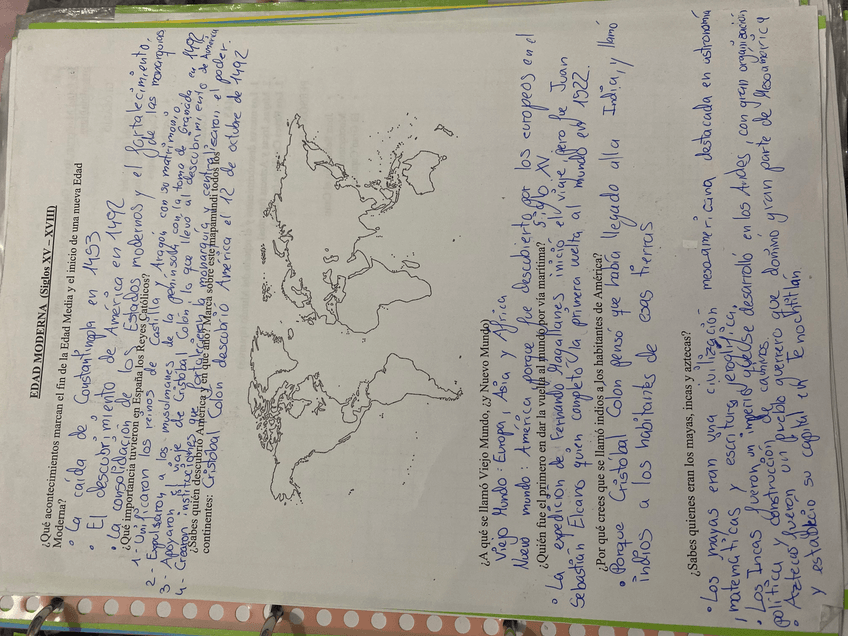 EDAD MODERNA (Siglos XV – XVIII)
¿Qué acontecimientos marcan el fin de la Edad Media y el inicio de una nueva Edad
Moderna?
• La caída de Constantinopla en 1453
• El descubrimiento de América en 1492
• La consolidación de los Estados modernos y el fortalecimiento,
de las monarquías
¿Qué importancia tuvieron en España los Reyes Católicos?
1- Unificaron los reinos de Castilla y Aragón con su matrimonio
2- Expulsaron a los musulmanes de la península con la toma de Granada en 1492
3- Apoyaron el viaje de Cristobal Colón, lo que llevó al descubrimiento de América
4- Crearon instituciones que fortalecieron la monarquía y centralizaron el poder.
¿Sabes quién descubrió América y en que año? Marca sobre este mapamundi todos los
continentes: Cristóbal Colón descubrió América el 12 de octubre de 1492
¿A qué se llamó Viejo Mundo, ¿y Nuevo Mundo)
Viejo Mundo: Europa, Asia y África
Nuevo mundo: América porque fue descubierto por los europeos en el
siglo XV
¿Quién fue el primero en dar la vuelta al mundo por vía marítima?
• La expedición de Fernando Magallanes inició el viaje pero fue Juan
Sebastián Elcano quien completó la primera vuelta al mundo en 1922.
¿Por qué crees que se llamó indios a los habitantes de América?
• Porque Cristóbal Colon pensó que había llegado alla India, y llamó
indios a los habitantes de esas tierras
¿Sabes quienes eran los mayas, incas y aztecas?
• Los mayas eran una civilización mesoamericana destacada en astronomía
, matemáticas y escritura jeroglífica,
• Los Incas fueron un imperio que se desarrolló en los Andes, con gran organización
política y construcción de caminos.
• Azteca fueron un pueblo guerrero que dominó gran parte de Mesoamérica
y estableció su capital en Tenochtitlan